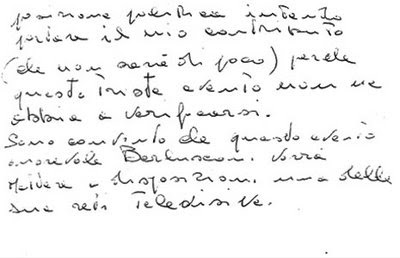 posizione politica intendo
portare il mio contributo
(che non sarà di poco) perche
questo triste evento non ne
abbia a verificarsi.
Sono convinto che questo evento
onorevole Berlusconi vorrà
mettere a disposizioni una delle
sue reti Teledisive.